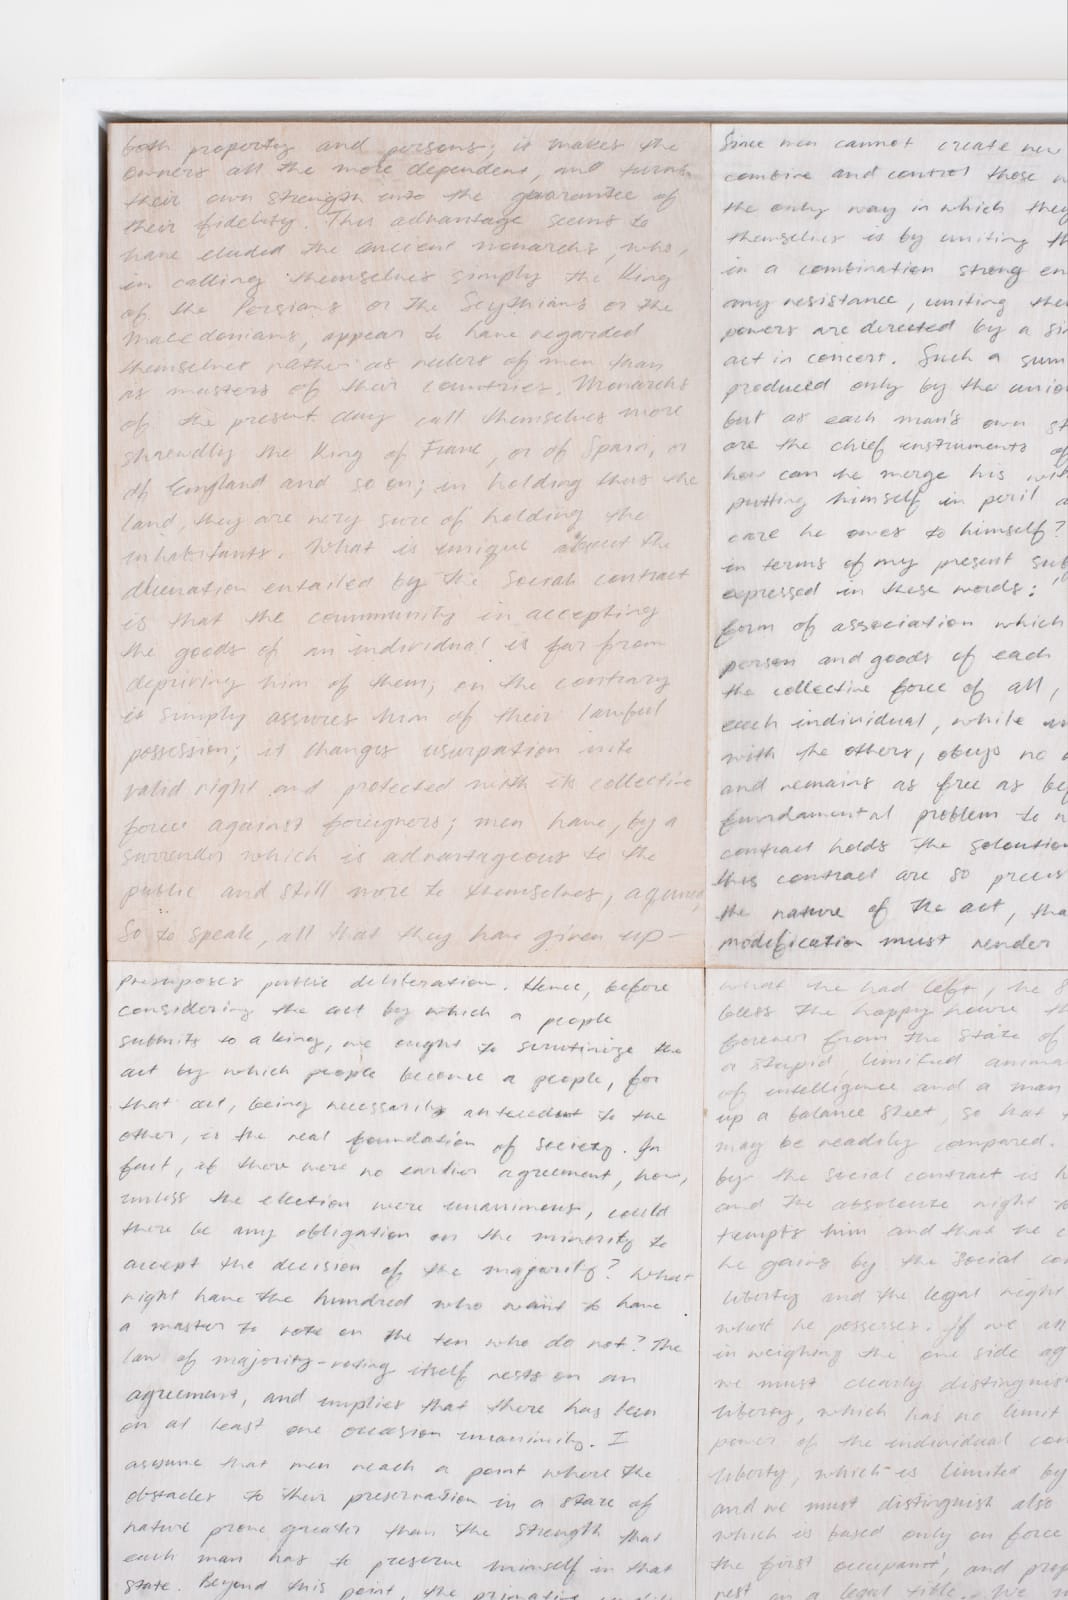 both property and persons; it makes the
owners all the more dependent, and turns
their own strength into the guarantee of
their fidelity. This advantage seems to
have eluded the ancient monarchs, who,
in calling themselves simply the King
of the Persians or the Scythians or the
Macedonians, appear to have regarded
themselves rather as rulers of men than
as masters of their countries. Monarchs
of the present day call themselves more
shrewdly the King of France, or of Spain, or
of England and so on; in holding thus the
land, they are very sure of holding the
inhabitants. What is unique about the
alienation entailed by the social contract
is that the community in accepting
the goods of an individual is far from
depriving him of them; on the contrary
it simply assures him of their lawful
possession; it changes usurpation into
valid right and protected with its collective
force against foreigners; men have, by a
surrender which is advantageous to the
public and still more to themselves, aquired,
So to speak, all that they have given up-
Since men cannot create new
combine and control those
the only way in which they
themselves is by uniting th
in a combination strong en
any resistance, uniting the
powers are directed by a si
act in concert. Such a sum
produced only by the unio
but as each man's own st
are the chief instruments of
how can he merge his with
putting himself in peril a
care he owes to himself?
in terms of my present sub
expressed in these words: "
form of association which
person and goods of each
the collective force of all,
each individual, while un
with the others, obeys no
and remains as free as bef
fundamental problem to
contract holds the solution
this contract are so precis
the nature of the act, tha
modification must render
presuposes public deliberation. Hence, before
considering the act by which a people
submits to a king, we ought to scrutinize the
act by which people become a people, for
that act, being necessarily antecedent to the
other, is the real foundation of society. In
fact, if there were no earlier agreement, how,
unless the election were unanimous, could
there be any obligation on the minority to
accept the decision of the majority? What
right have the hundred who want to have
a master to vote on the ten who do not? The
law of majority-voting itself rests on an
agreement, and implies that there has been
on at least one occasion unanimity. I
assume that men reach a point where the
obstacles to their preservation in a state of
nature prove greater than the strength that
each man has to preserve himself in that
state. Beyond this point, the primative
what he had left, he s
bless the happy howre th
forever from the state of
a stupid, limited anima
of intelligence and a man
up a balance sheet, so that
may be readily compared.
by the social contract is h
and the absolute right to
tempts him and that he c
he gains by the social con
liberty and the legal right
what he possesses. If we are
in weighing the one side ag
we must clearly distinguis
liberty, which has no limit
power of the individual con
liberty, which is limited by
and we must distinguish also
which is based only on force
the first occupant, and prop
rest on a legal title. We m